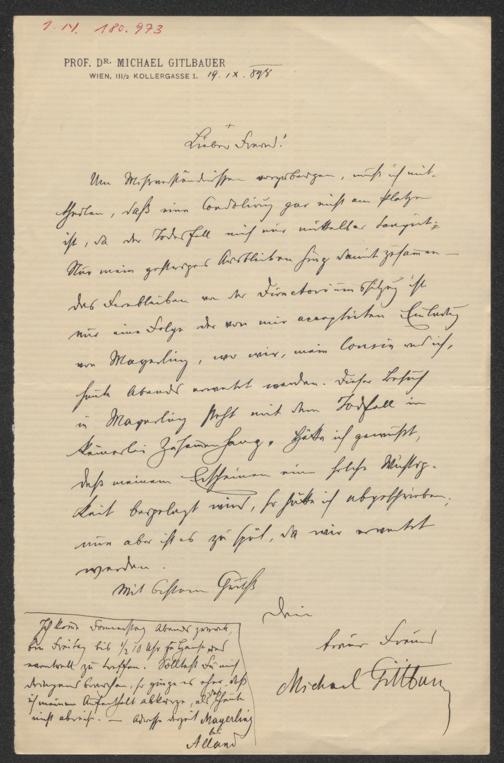 I. N. 180.973
PROF. DR. MICHAEL GITLBAUER
WIEN, III/2 KOLLERGASSE 1. 19. IX. 898
+
Lieber Freund!
Um Missverständnissen vorzubeugen, muß ich mit-
theilen, daß eine Condolirung gar nicht am Platze
ist, da der Todesfall mich nur mittelbar tangirt;
Nur mein gestriges Ausbleiben hing damit zusammen —
das Fernbleiben von der Directoriumssitzung ist
nur eine Folge der von mir acceptirten Einladung
von Mayerling, wo wir, mein Cousin und ich,
heute Abends erwartet werden. Dieser Besuch
in Mayerling steht mit dem Todfall in
keinerlei Zusammenhang. Hätte ich gewußt,
daß meinem Erscheinen eine solche Wichtig-
keit beigelegt wird, so hätte ich abgeschrieben;
nun aber ist es zu spät, da wir erwartet
werden.
Mit bestem Gruß
Dein
treuer Freund
Michael Gitlbauer
Ich komme Donnerstag Abends zurück,
bin Freitag bis 1/2 10 Uhr zu Hause
eventuell zu treffen. Solltest Du mich
dringend brauchen, so ginge es eher, daß
ich meinen Aufenthalt abkürze, als heute
nicht abreise. — Adresse derzeit Mayerling
bei
Alland